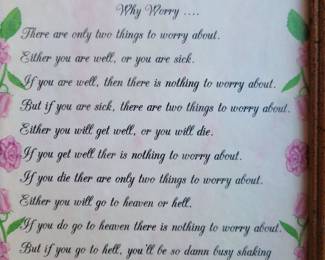 Why Worry ....
There are only two things to worry about.
Either you are well, or you are sick.
If you are well, then there is nothing to worry about.
But if you are sick, there are two things to worry about.
Either you will get well, or you will die.
If you get well ther is nothing to worry about.
If you die ther are only two things to worry about.
Either you will go to heaven or hell.
If you do go to heaven there is nothing to worry about.
But if you go to hell, you'll be so damn busy shaking